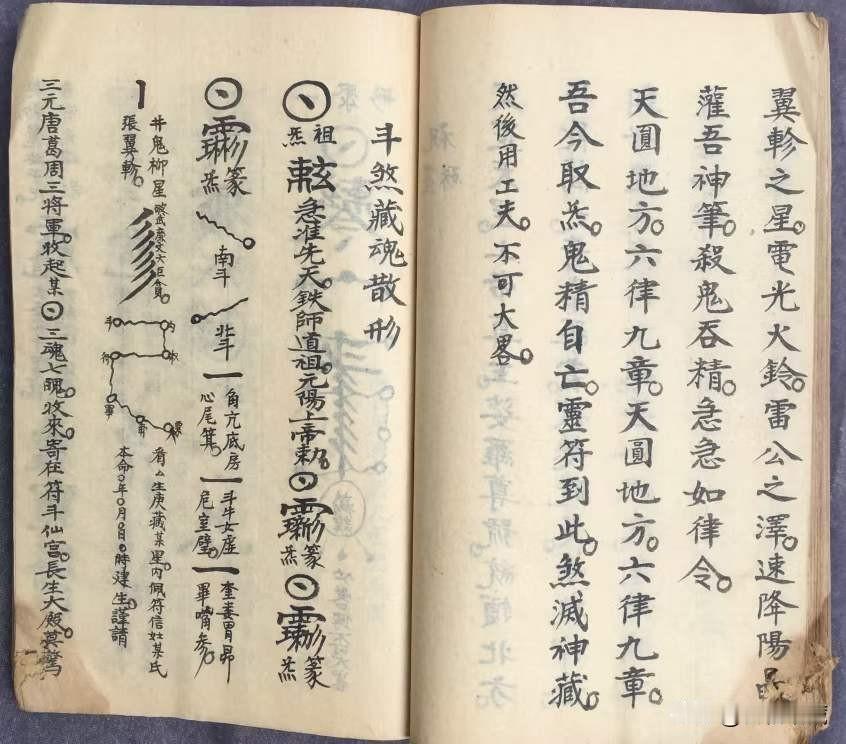 翼軫之星。電光火鈴。雷公之澤。速降陽
灌吾神筆。殺鬼吞精。急急如律令。
天圓地方。六律九章。天圓地方。六律九章。
吾今取炁。鬼精自亡。靈符到此。煞滅神藏。
然後用工夫。不可大畧。
斗煞藏魂散形
祖炁
急准先天。鉄師道祖。元陽上帝勅。
篆炁
篆炁
篆炁
南斗
北斗
角亢底房
心尾箕。
斗牛女虛
危室壁。
奎婁胃昴
畢嘴參。
井鬼柳星
張翼軫。
破武廉文大巨貪。
生庚藏某星內佩符信女某氏
本命〇年〇月〇日〇時建生。謹請
三元唐葛周三將軍。收起某
三魂七魄。收來寄在符斗仙宮。長生大殿。莫驚